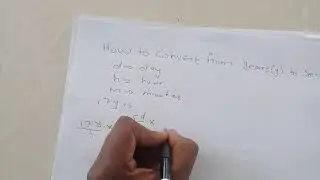 How to Convert from years(y) to
d= day
h= hour
m= minutes
17y
17y x